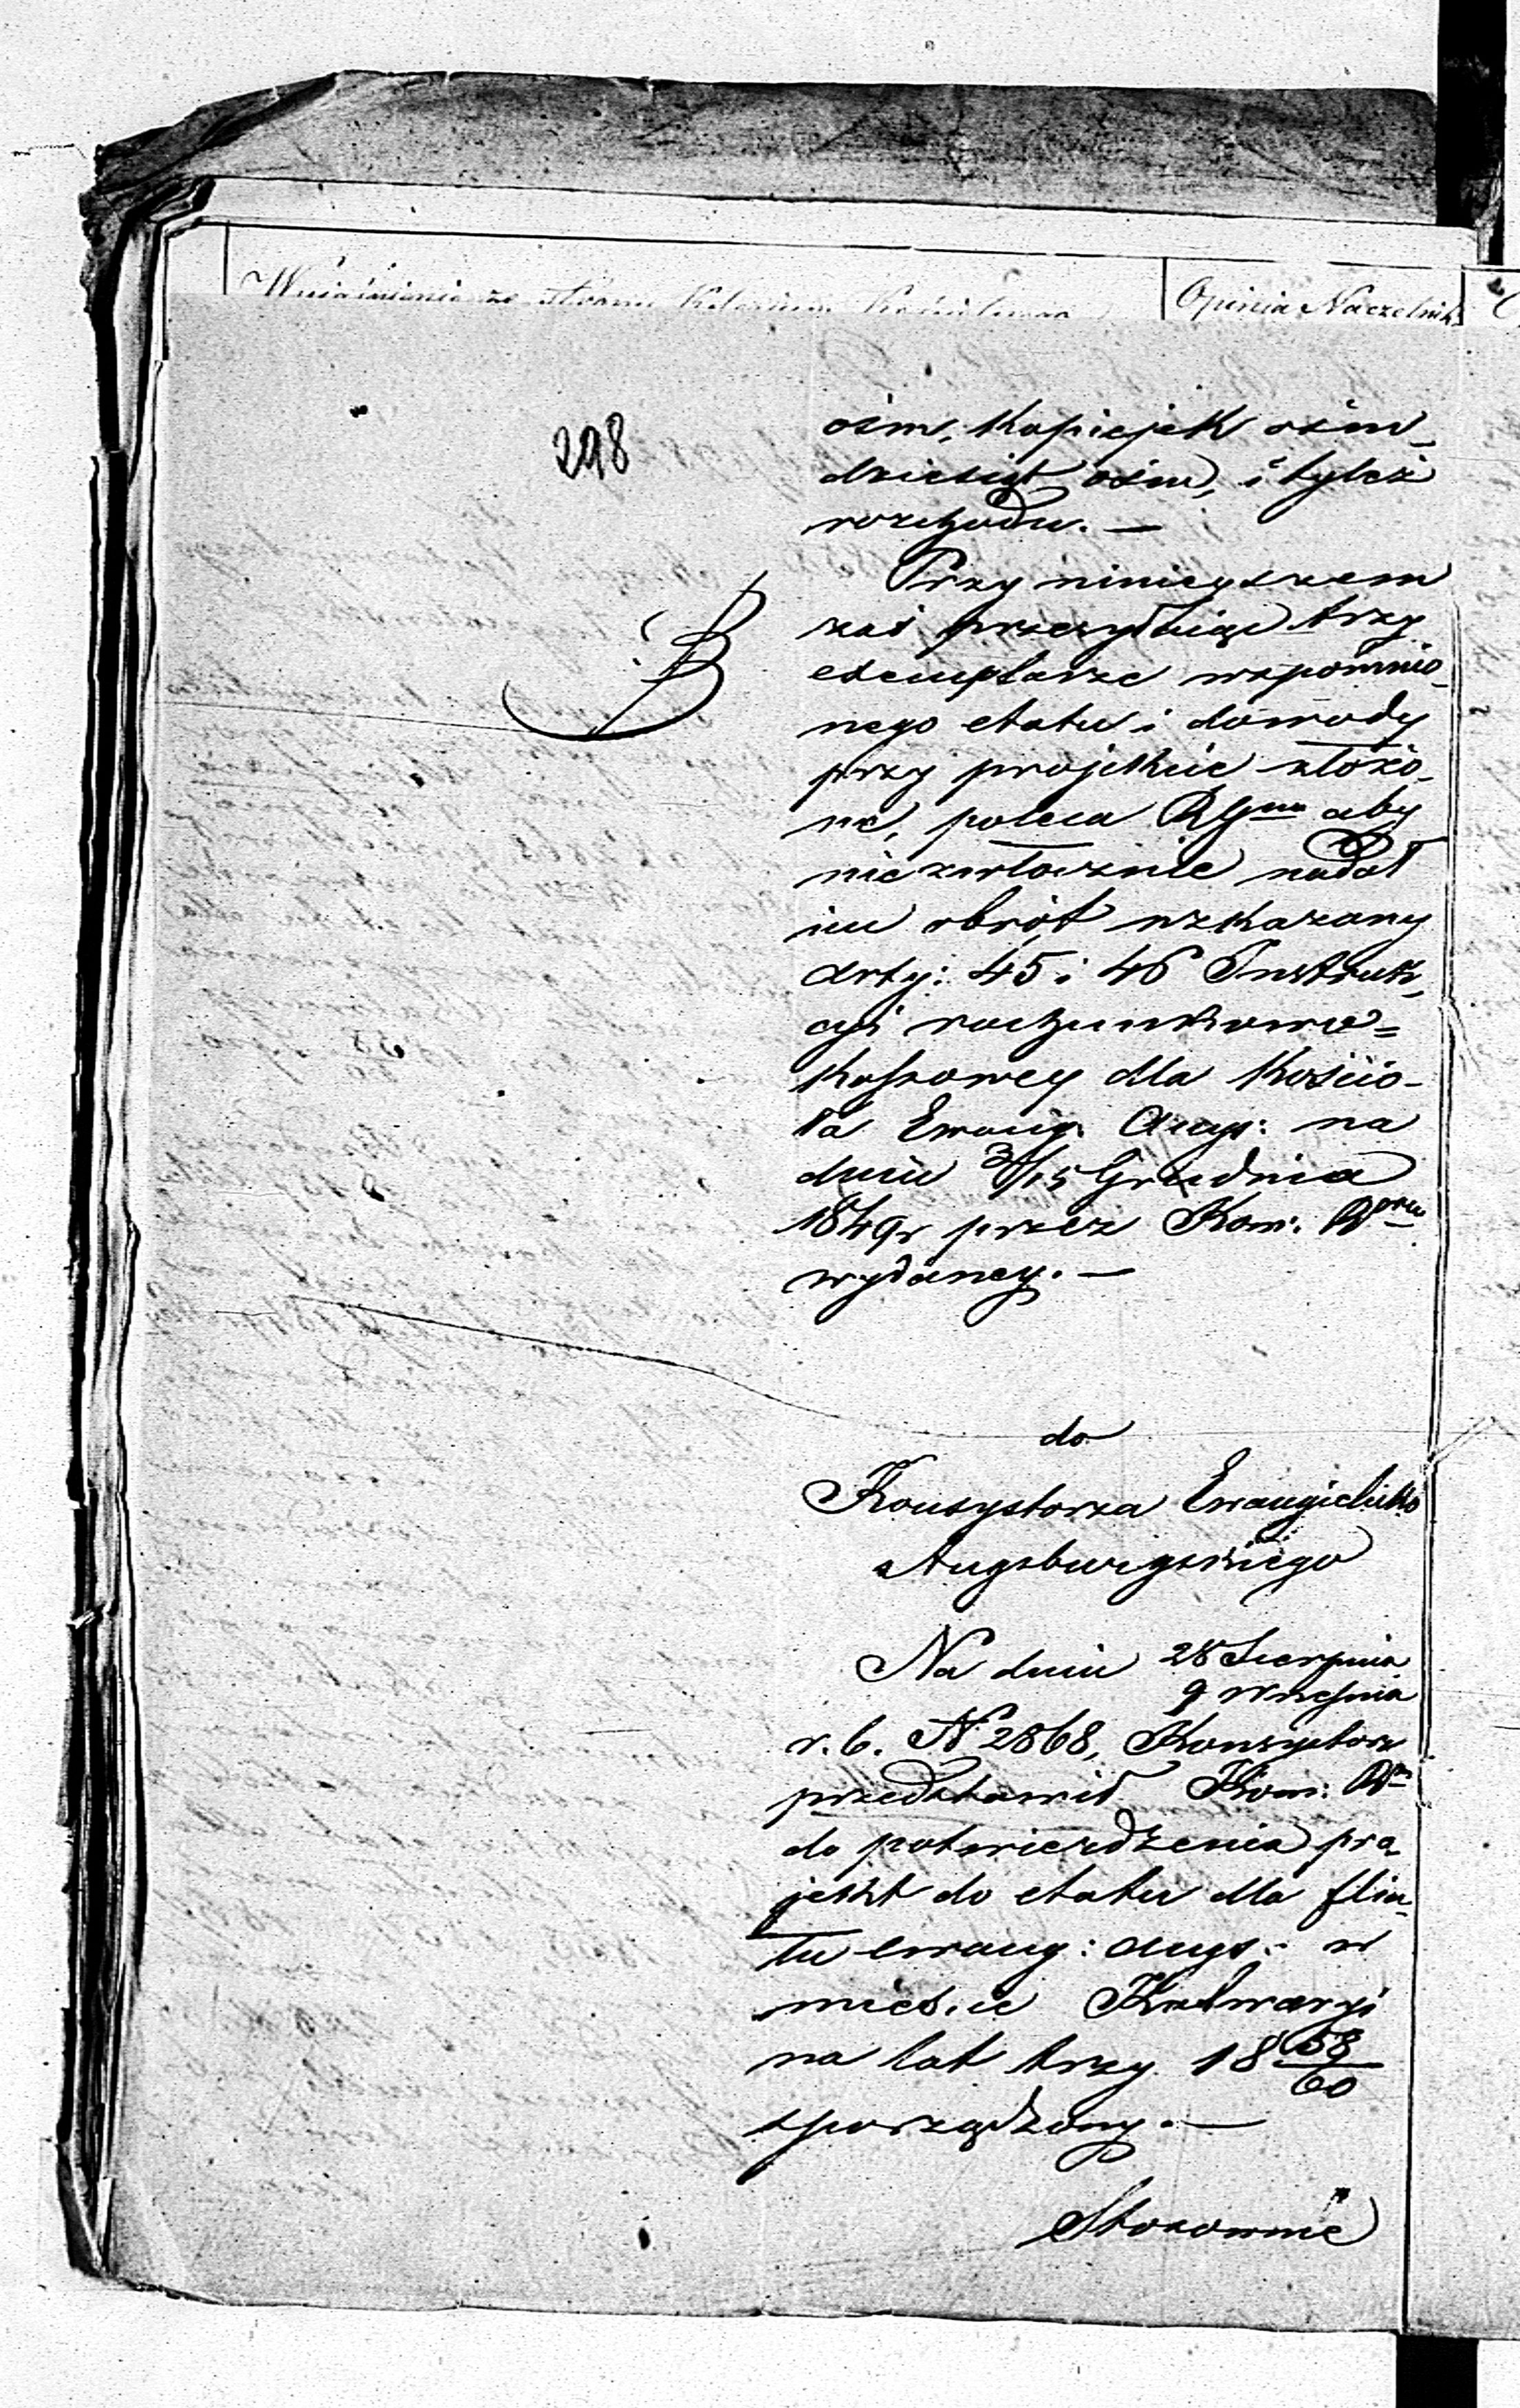 Opinia Naczelnik
298
ośm, Kopiejek ośm_
dziesiąt ośm, i tyleż
rozchodu. —
Przy ninieyszem
zaś przesyłaiąc trzy
exemplarze wspomnio_
nego etatu i dowody
przy projekcie złożo_
ne, poleca RGmu aby
niezwłocznie nadał
im obrót wskazany
Arty: 45 i 46 Instruk_
cyi rachunkowo=
Kassowey dla Kościo_
ła Ewang. Augs: na
dniu 3/15 Grudnia
1849r przez Kom. Rz
wydaney. —
do
Konsystorza Ewangielicko
Augsburgskiego
Na dniu 28 Sierpnia
9 Września
r. b. N 2868, Konsystorz
przedstawił Kom: Rz
do potwierdzenia pro_
jekt do etatu dla filia_
łu ewang: augs: w
mieście Kalwaryi
na lat trzy 18 58/60
sporządzony. —
Stosownie